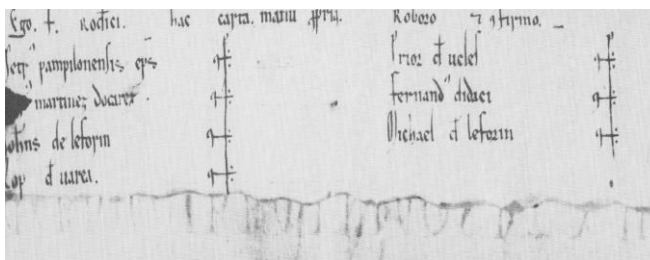 Ego. f. Rodici. hac carta. manu ꝓpria. Roboro ⁊ ꝯfirmo.
Petrꝰ pampilonensis eps
martinez docarez.
Johns de leforin
Lop đ uarea.
Prior đ ucles
Fernandꝰ didaci
Michael đ leforin